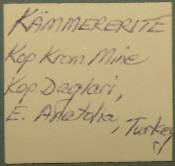 KÄMMERERITE
Kop Krom Mine
Kop Daglari,
E. Anatolia, Turkey